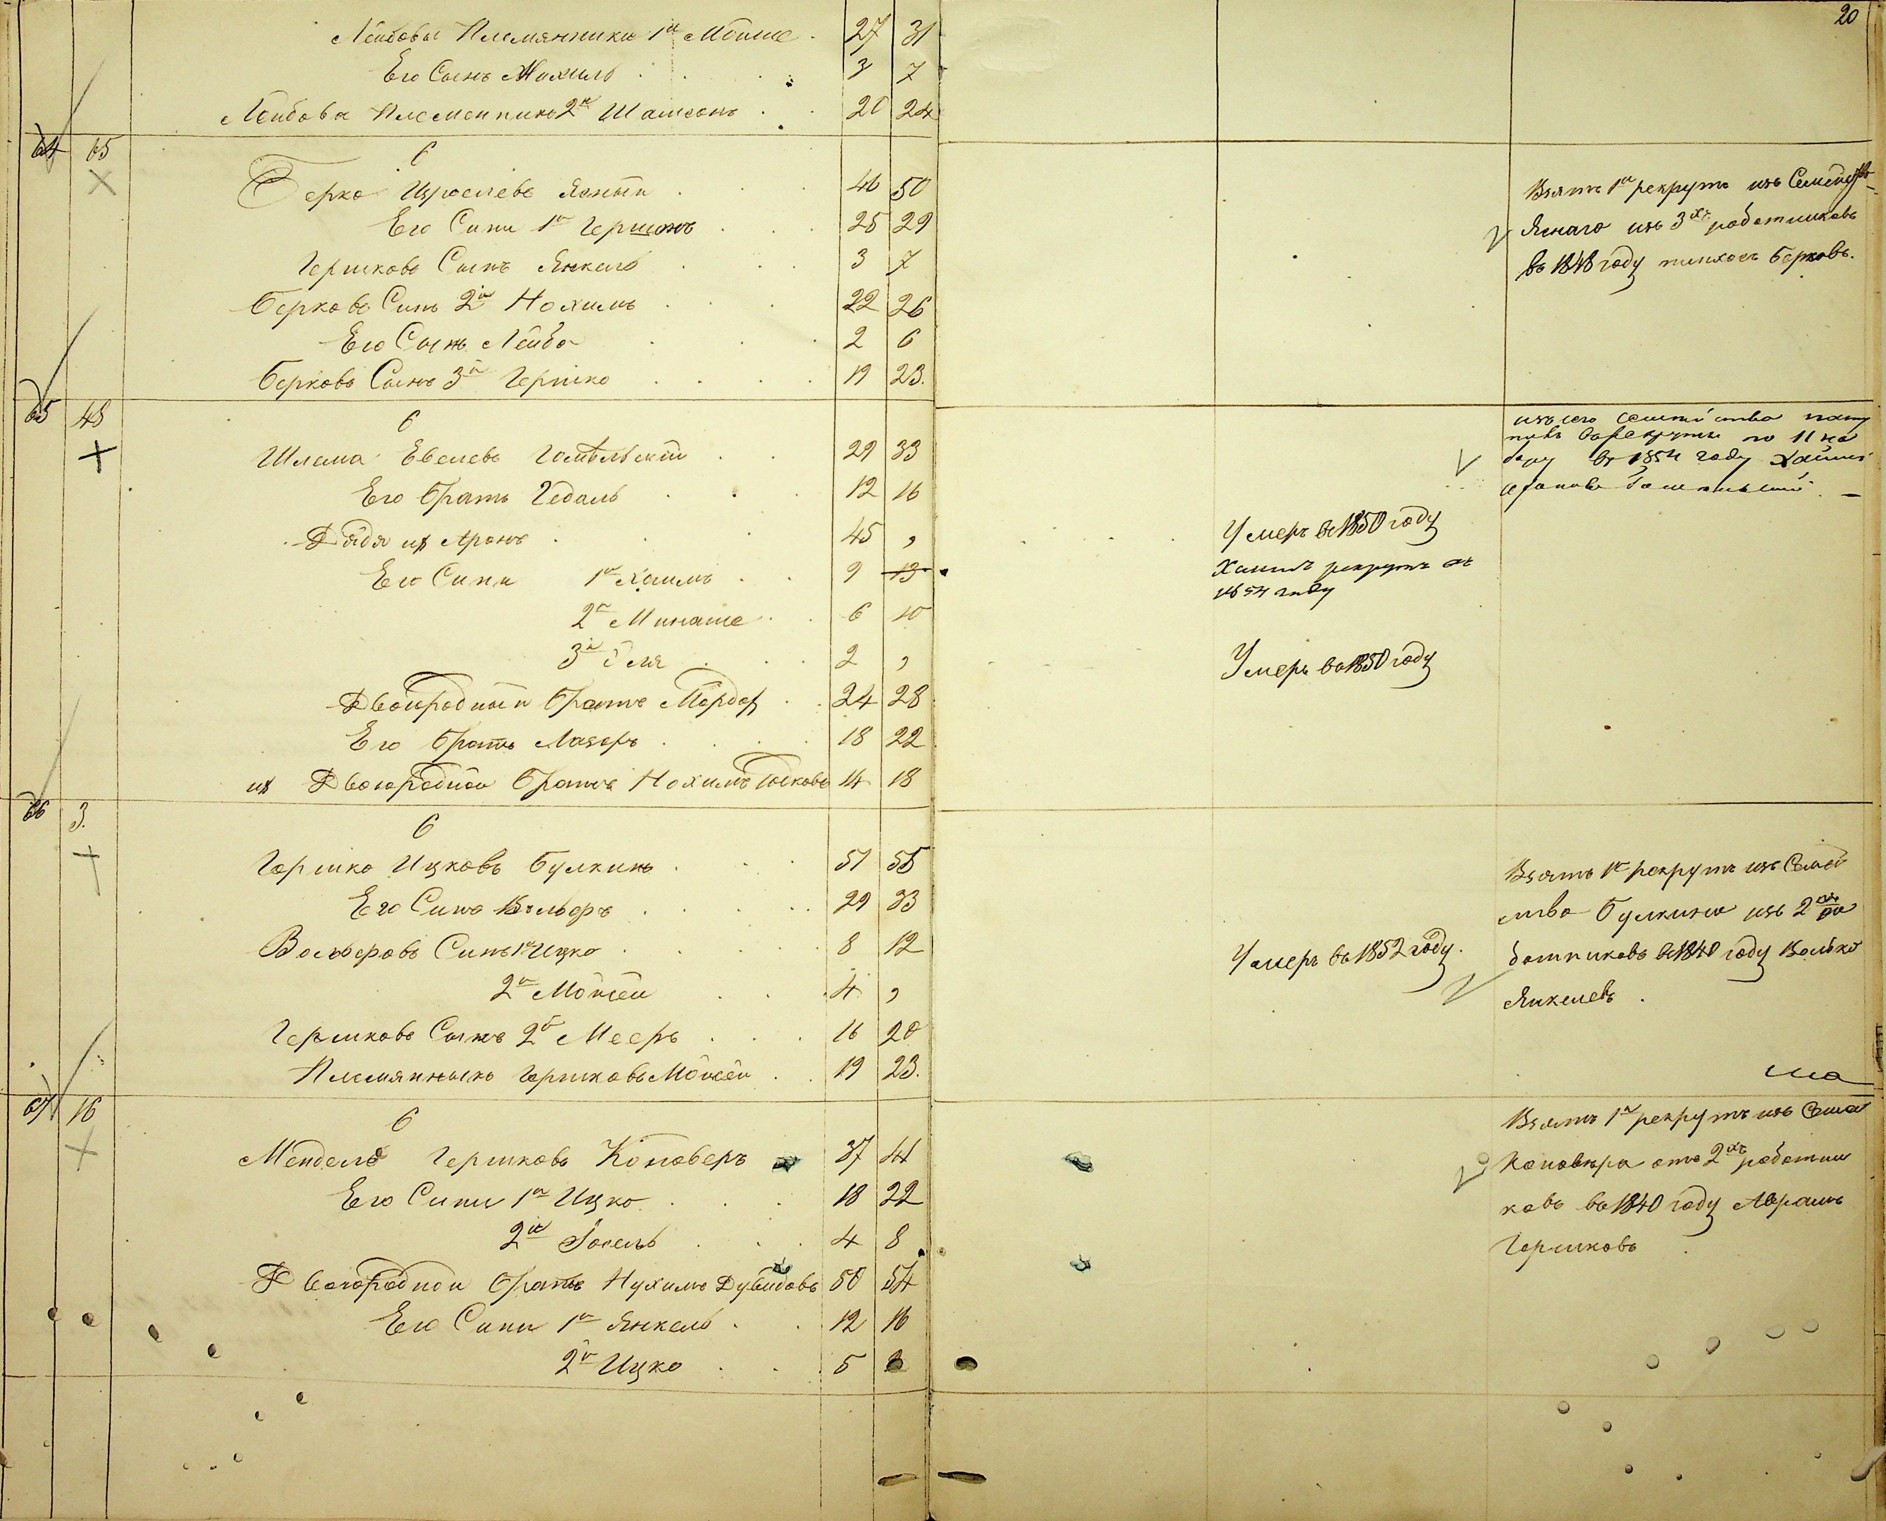 20
Лейбовы Племянники 1й Мовше 27 31
Его Сынъ Михель 3 7
Лейбовъ Племенникъ 2й Шамсонъ 20 24
64 65
6
Берко Израелевъ Ясный 46 50
Его Сини 1й Гершонъ 25 29
Гершковъ Сынъ Янкель 3 7
Берковъ Синъ 2й Нохимъ 22 26
Его Сынъ Лейба 2 6
Берковъ Сынъ 3й Гершко 19 23
Взятъ 1й рекрутъ изъ Семейств
Яснаго изъ 3хъ работниковъ
въ 1848 году Пинхосъ Берковъ.
65 48
6
Шлема Евелевъ Гомельский 29 33
Его братъ Гедаль 12 16
Дядя их Аронъ 45 ,
Умеръ въ 1850 году
Его Сини 1й Хаимъ 9 13
Хаимъ рекрутъ въ
1854 году
2й Минаше 6 10
3й Эля 2 ,
Умеръ въ 1850 году
Двоюродный братъ Мордех 24 28
Его братъ Лазеръ 18 22
их Двоюродной братъ Нохимъ Юдковъ 14 18
изъ сего семейства посту
пивъ в рекруты по 11 на
бору въ 1854 году Хаимъ
Ароновъ Гомельский
66 3
6
Гершко Ицковъ Булкинъ 51 55
Его Синъ Вольфъ 29 33
Вольфовъ Синъ 1й Ицко 8 12
2й Мойсей 4 ,
Умеръ въ 1852 году.
Гершковъ Сынъ 2й Мееръ 16 20
Племянникъ Гершковъ Мойсей 19 23
Взятъ 1й рекрутъ изъ Семей
ства Булкина изъ 2хъ ра
ботниковъ въ 1840 году Волько
Янкелевъ
67 16
6
Мендель Гершковъ Коноверъ 37 41
Его Сини 1й Ицко 18 22
2й Іосель 4 8
Двоюродной братъ Нухимъ Дувидовъ 50 54
Его Сини 1й Янкель 12 16
2й Ицко 5
Взятъ 1й рекрутъ изъ Семей
ства
Коновера отъ 2хъ работни
ковъ въ 1840 году Абрамъ
Гершковъ